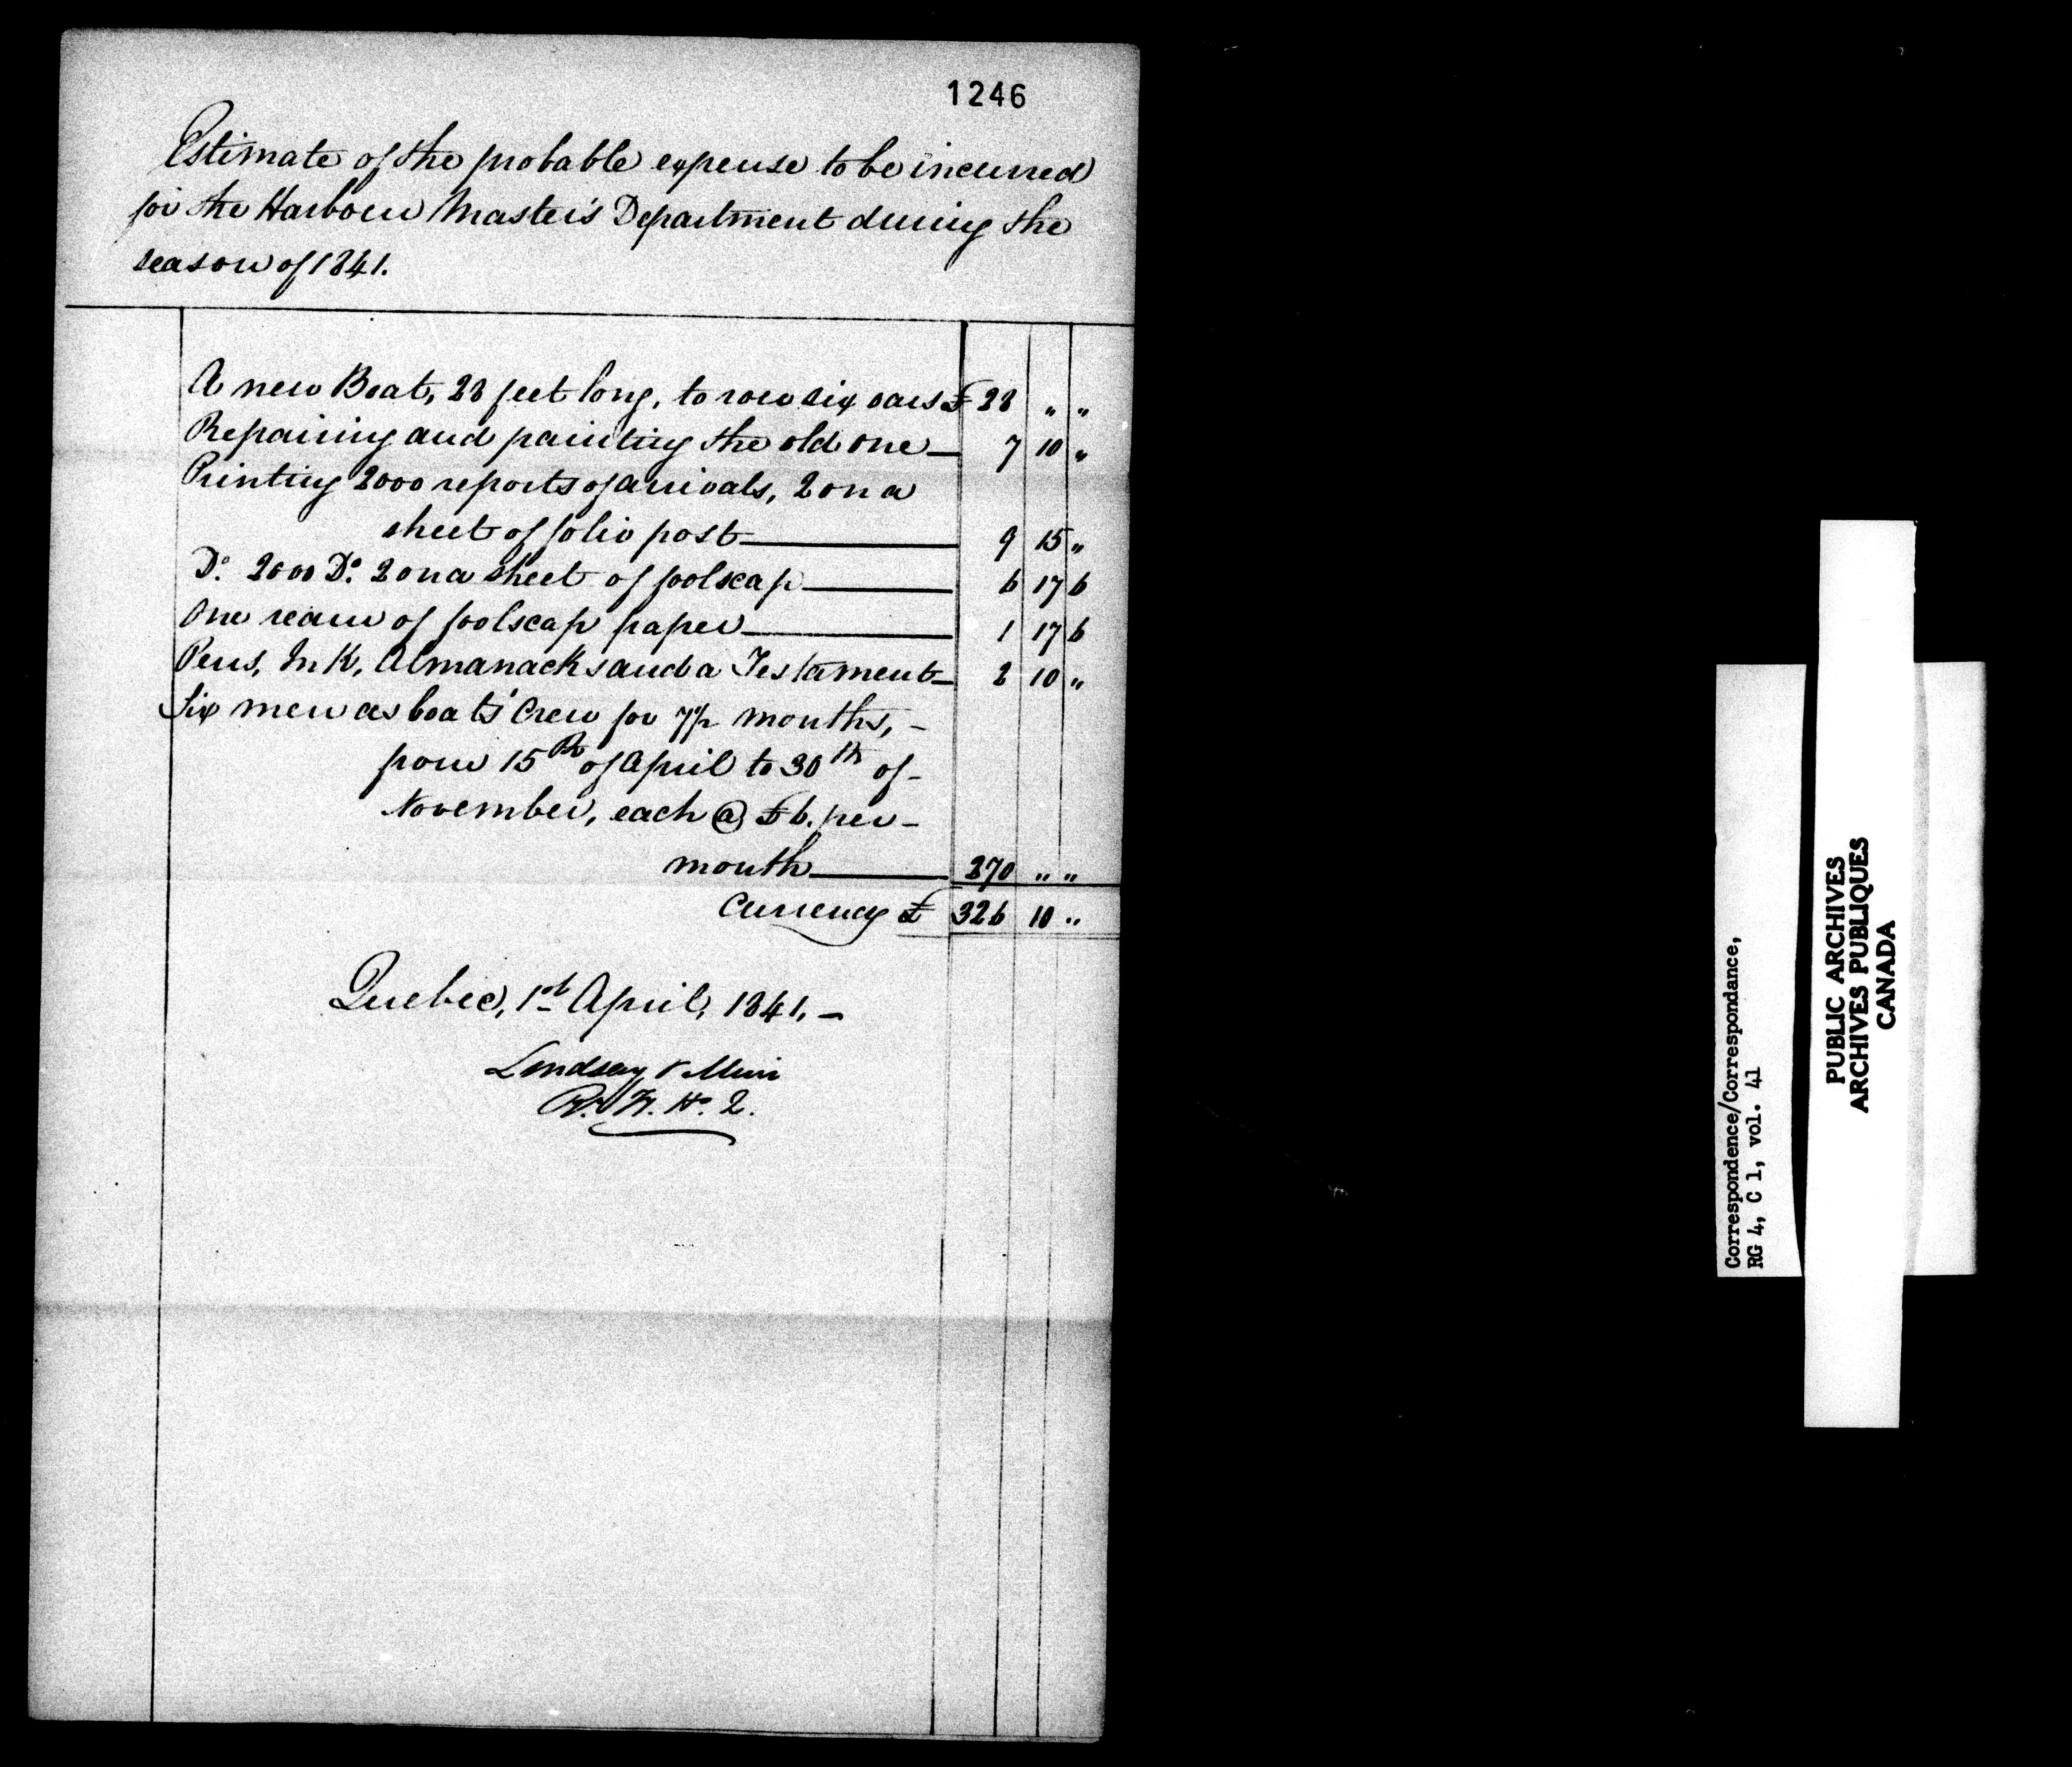 1246
Estimate of the probable expense to be incurred
for the Harbour Master's Department during the
season of 1841.
A new Boat, 28 feet long, to row six oars £ 28 " "
Repairing and painting the old one — 7 10 "
Printing 2000 reports of arrivals, 2 on a
sheet of folio post — 9 15 "
Do. 2000 Do. 2 on a sheet of foolscap — 6 17 6
One ream of foolscap paper — 1 17 6
Pens, Ink, Almanacks and a Testament — 2 10 "
Six men as boats' Crew for 7½ months, -
from 15th of April to 30th of -
November, each @ £6. per -
month — 270 " "
Currency £ 326 10 "
Quebec, 1st April, 1841. —
Lindsay
Correspondence/Correspondance,
RG 4, C 1, vol. 41
PUBLIC ARCHIVES
ARCHIVES PUBLIQUES
CANADA